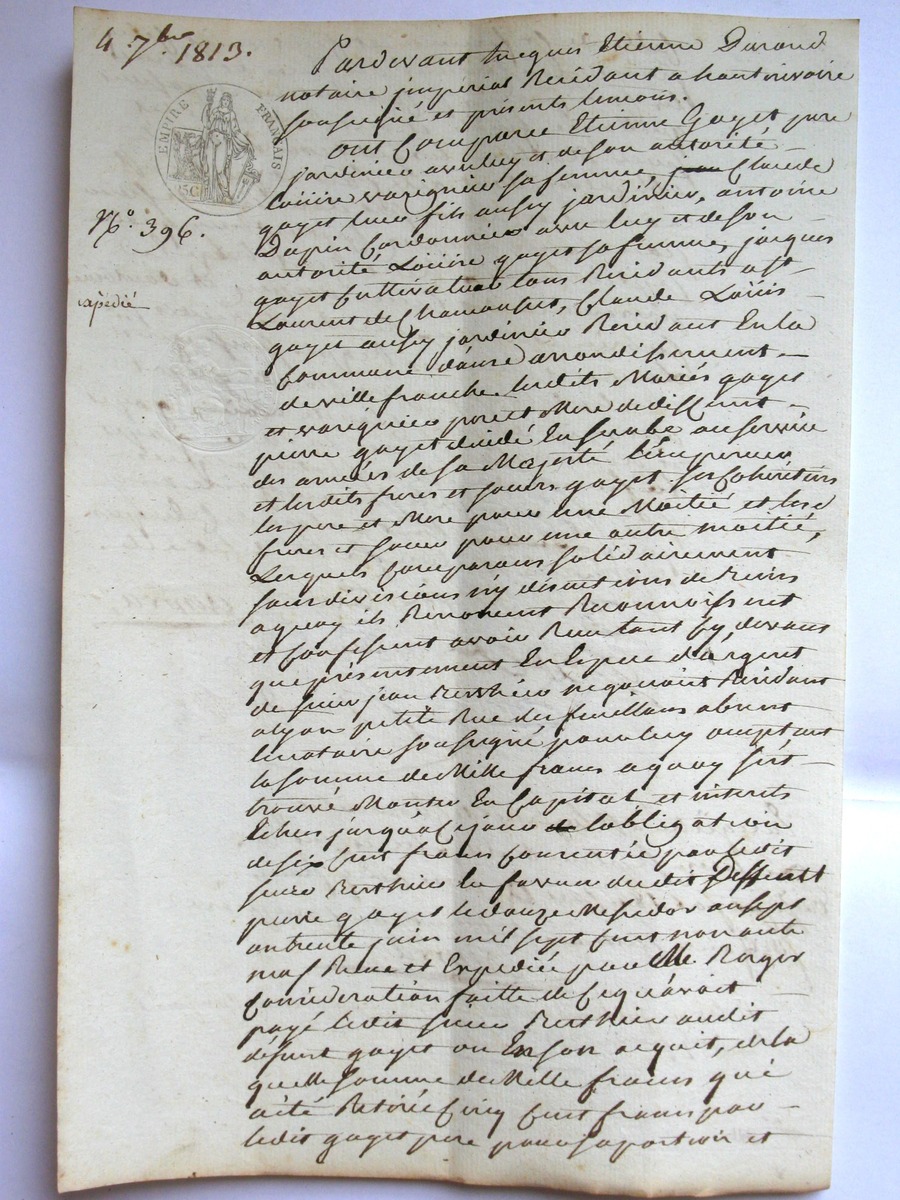 4 7bre 1813.
EMPIRE FRANÇAIS
25C
N.o 396.
expédié
Pardevant Etienne Durand
notaire impérial Résidant a hauterivoire
soussigné et présents temoins.
ont Comparu Etienne Gayet pere
jardinier avec luy et de son autorité
Louise varegnier sa femme, Claude
gayet leur fils aussy jardinier, antoine
Dupin Cordonnier avec luy et de son
autorité Louise gayet sa femme, jacques
gayet Cultivateur tous Résidants a St
Laurent de Chamousset, Claude Louis
gayet aussy jardinier Résidant En la
Commune danse arrondissement
de villefranche. Lesdits Mariés gayet
et varegnier pere et Mere dedeffunt
pierre gayet décédé au service
des armées de Sa Majesté L'Empereur
et lesdits freres et soeurs gayet ses Cohéritiers
les pere et Mere pour une Moitié et les d
freres et soeurs pour une autre moitié,
Lesquels Comparans solidairement
sans divisions ny discutions de biens
a quoy ils Renoncent Reconnoissent
et Confessent avoir Reçu tant cy devant
que présentement En Espece d'argent
de sieur jean Berthier negociant Résidant
a lyon petite Rue des feuillans absent
le notaire soussigné pour luy acceptant
la somme de Mille francs a quoy s'est
trouvé Monter En Capital et interets
Echus jusqu'a Ce jour l'obligation
de six Cent francs Consentie par ledit
sieur Berthier En faveur du dit Deffunt
pierre gayet le douze Messidor an sept
ou trente juin mil sept Cent nonante
neuf Reçue et Expediée par Me Roger
Consideration faitte de Ce qu'avoit
payé ledit sieur Berthier audit
défunt gayet ou En son acquit, de la
quelle somme de Mille francs qui
a été Retirée Cinq Cent francs par
ledit gayet pere pour sa portion et